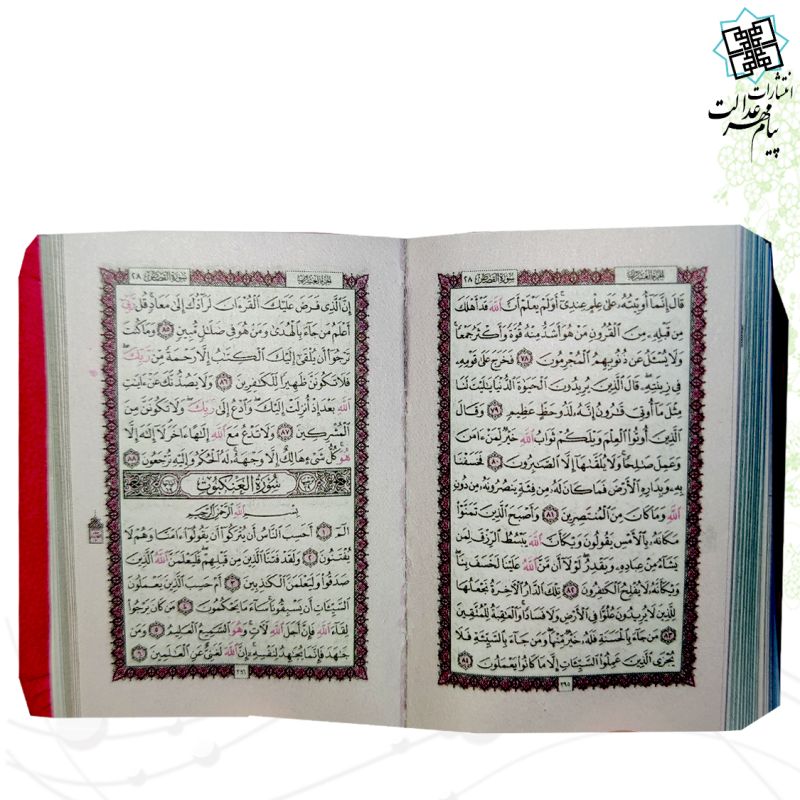 انتشارات
پیام مهر عدالت
الجزء العشرون
سورة القصص ٢٨
قَالَ إِنَّمَآ أُوتِيتُهُۥ عَلَىٰ عِلْمٍ عِندِىٓ أَوَلَمْ يَعْلَمْ أَنَّ ٱللَّهَ قَدْ أَهْلَكَ
مِن قَبْلِهِۦ مِنَ ٱلْقُرُونِ مَنْ هُوَ أَشَدُّ مِنْهُ قُوَّةً وَأَكْثَرُ جَمْعًا
وَلَا يُسْـَٔلُ عَن ذُنُوبِهِمُ ٱلْمُجْرِمُونَ ٧٨ فَخَرَجَ عَلَىٰ قَوْمِهِۦ
فِى زِينَتِهِۦ قَالَ ٱلَّذِينَ يُرِيدُونَ ٱلْحَيَوٰةَ ٱلدُّنْيَا يَٰلَيْتَ لَنَا
مِثْلَ مَآ أُوتِىَ قَٰرُونُ إِنَّهُۥ لَذُو حَظٍّ عَظِيمٍ ٧٩ وَقَالَ
ٱلَّذِينَ أُوتُوا۟ ٱلْعِلْمَ وَيْلَكُمْ ثَوَابُ ٱللَّهِ خَيْرٌ لِّمَنْ ءَامَنَ
وَعَمِلَ صَٰلِحًا وَلَا يُلَقَّىٰهَآ إِلَّا ٱلصَّٰبِرُونَ ٨٠ فَخَسَفْنَا
بِهِۦ وَبِدَارِهِ ٱلْأَرْضَ فَمَا كَانَ لَهُۥ مِن فِئَةٍ يَنصُرُونَهُۥ مِن دُونِ
ٱللَّهِ وَمَا كَانَ مِنَ ٱلْمُنتَصِرِينَ ٨١ وَأَصْبَحَ ٱلَّذِينَ تَمَنَّوْا۟
مَكَانَهُۥ بِٱلْأَمْسِ يَقُولُونَ وَيْكَأَنَّ ٱللَّهَ يَبْسُطُ ٱلرِّزْقَ لِمَن
يَشَآءُ مِنْ عِبَادِهِۦ وَيَقْدِرُ لَوْلَآ أَن مَّنَّ ٱللَّهُ عَلَيْنَا لَخَسَفَ بِنَا
وَيْكَأَنَّهُۥ لَا يُفْلِحُ ٱلْكَٰفِرُونَ ٨٢ تِلْكَ ٱلدَّارُ ٱلْءَاخِرَةُ نَجْعَلُهَا
لِلَّذِينَ لَا يُرِيدُونَ عُلُوًّا فِى ٱلْأَرْضِ وَلَا فَسَادًا وَٱلْعَٰقِبَةُ لِلْمُتَّقِينَ
٨٣ مَن جَآءَ بِٱلْحَسَنَةِ فَلَهُۥ خَيْرٌ مِّنْهَا وَمَن جَآءَ بِٱلسَّيِّئَةِ فَلَا
يُجْزَى ٱلَّذِينَ عَمِلُوا۟ ٱلسَّيِّـَٔاتِ إِلَّا مَا كَانُوا۟ يَعْمَلُونَ ٨٤
٣٩٥
الجزء العشرون
سورة القصص ٢٨
إِنَّ ٱلَّذِى فَرَضَ عَلَيْكَ ٱلْقُرْءَانَ لَرَآدُّكَ إِلَىٰ مَعَادٍ قُل رَّبِّىٓ
أَعْلَمُ مَن جَآءَ بِٱلْهُدَىٰ وَمَنْ هُوَ فِى ضَلَٰلٍ مُّبِينٍ ٨٥ وَمَا كُنتَ
تَرْجُوٓا۟ أَن يُلْقَىٰٓ إِلَيْكَ ٱلْكِتَٰبُ إِلَّا رَحْمَةً مِّن رَّبِّكَ
فَلَا تَكُونَنَّ ظَهِيرًا لِّلْكَٰفِرِينَ ٨٦ وَلَا يَصُدُّنَّكَ عَنْ ءَايَٰتِ
ٱللَّهِ بَعْدَ إِذْ أُنزِلَتْ إِلَيْكَ وَٱدْعُ إِلَىٰ رَبِّكَ وَلَا تَكُونَنَّ مِنَ
ٱلْمُشْرِكِينَ ٨٧ وَلَا تَدْعُ مَعَ ٱللَّهِ إِلَٰهًا ءَاخَرَ لَآ إِلَٰهَ إِلَّا
هُوَ كُلُّ شَىْءٍ هَالِكٌ إِلَّا وَجْهَهُۥ لَهُ ٱلْحُكْمُ وَإِلَيْهِ تُرْجَعُونَ ٨٨
سُورَةُ العَنكَبُوتِ
بِسْمِ ٱللَّهِ ٱلرَّحْمَٰنِ ٱلرَّحِيمِ
الٓمٓ ١ أَحَسِبَ ٱلنَّاسُ أَن يُتْرَكُوٓا۟ أَن يَقُولُوٓا۟ ءَامَنَّا وَهُمْ لَا
يُفْتَنُونَ ٢ وَلَقَدْ فَتَنَّا ٱلَّذِينَ مِن قَبْلِهِمْ فَلَيَعْلَمَنَّ ٱللَّهُ ٱلَّذِينَ
صَدَقُوا۟ وَلَيَعْلَمَنَّ ٱلْكَٰذِبِينَ ٣ أَمْ حَسِبَ ٱلَّذِينَ يَعْمَلُونَ
ٱلسَّيِّـَٔاتِ أَن يَسْبِقُونَا سَآءَ مَا يَحْكُمُونَ ٤ مَن كَانَ يَرْجُوا۟
لِقَآءَ ٱللَّهِ فَإِنَّ أَجَلَ ٱللَّهِ لَءَاتٍ وَهُوَ ٱلسَّمِيعُ ٱلْعَلِيمُ ٥ وَمَن
جَٰهَدَ فَإِنَّمَا يُجَٰهِدُ لِنَفْسِهِۦٓ إِنَّ ٱللَّهَ لَغَنِىٌّ عَنِ ٱلْعَٰلَمِينَ ٦
٣٩٦